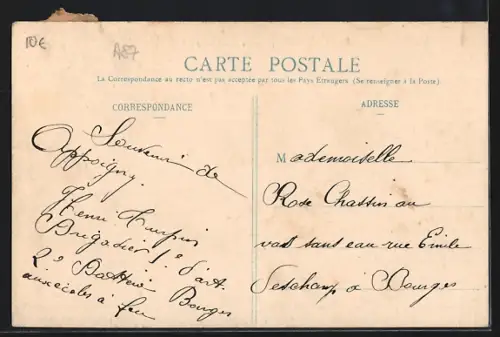 10€
A87
CARTE POSTALE
La Correspondance au recto n'est pas acceptée par tous les Pays Etrangers (Se renseigner à la Poste).
CORRESPONDANCE
Souvenir de
Appoigny.
Henri
Brigadier 1º d'art.
2º Batterie Bourges
a feu
ADRESSE
Mademoiselle
Rose
sans eau rue Emile
Deschamp à Bourges